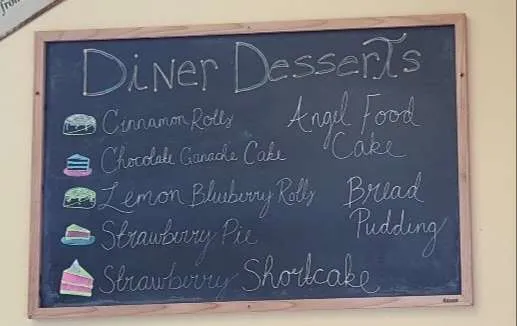 Diner Desserts
Cinnamon Rolls
Chocolate Ganache Cake
Lemon Blueberry Rolls
Strawberry Pie
Strawberry Shortcake
Angel Food
Cake
Bread
Pudding